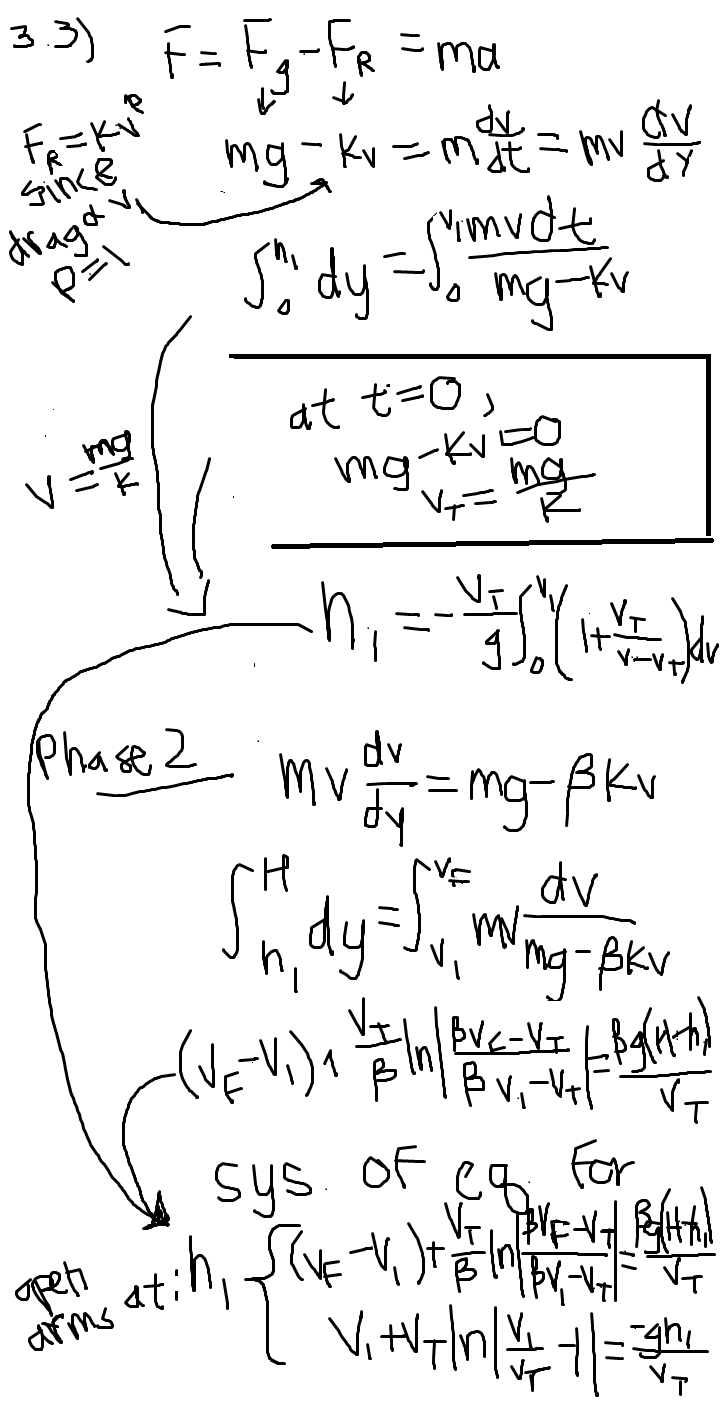 3.3) F = F_g - F_R = ma
F_R = Kv^P
since
drag α v,
P=1
mg - Kv = m dv/dt = mv dv/dy
∫_0^{h_1} dy = ∫_0^{v_1} mvdt/(mg-Kv)
at t=0,
mg-Kv=0
v_T = mg/K
v = mg/K
h_1 = -v_T/g ∫_0^{v_1} (1 + v_T/(v-v_T)) dv
Phase 2
mv dv/dy = mg - βKv
∫_{h_1}^H dy = ∫_{v_1}^{v_F} mv dv/(mg-βKv)
(v_F - v_1) + v_T/β ln|(βv_F - v_T)/(βv_1 - v_T)| = βg(H-h_1)/v_T
sys. of eq for
open arms at: h_1
{ (v_F - v_1) + v_T/β ln|(βv_F - v_T)/(βv_1 - v_T)| = βg(H-h_1)/v_T
v_1 + v_T ln|v_1/v_T - 1| = -gh_1/v_T